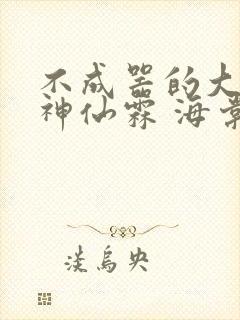 不成器的大
神仙霖 海棠
淡乌央